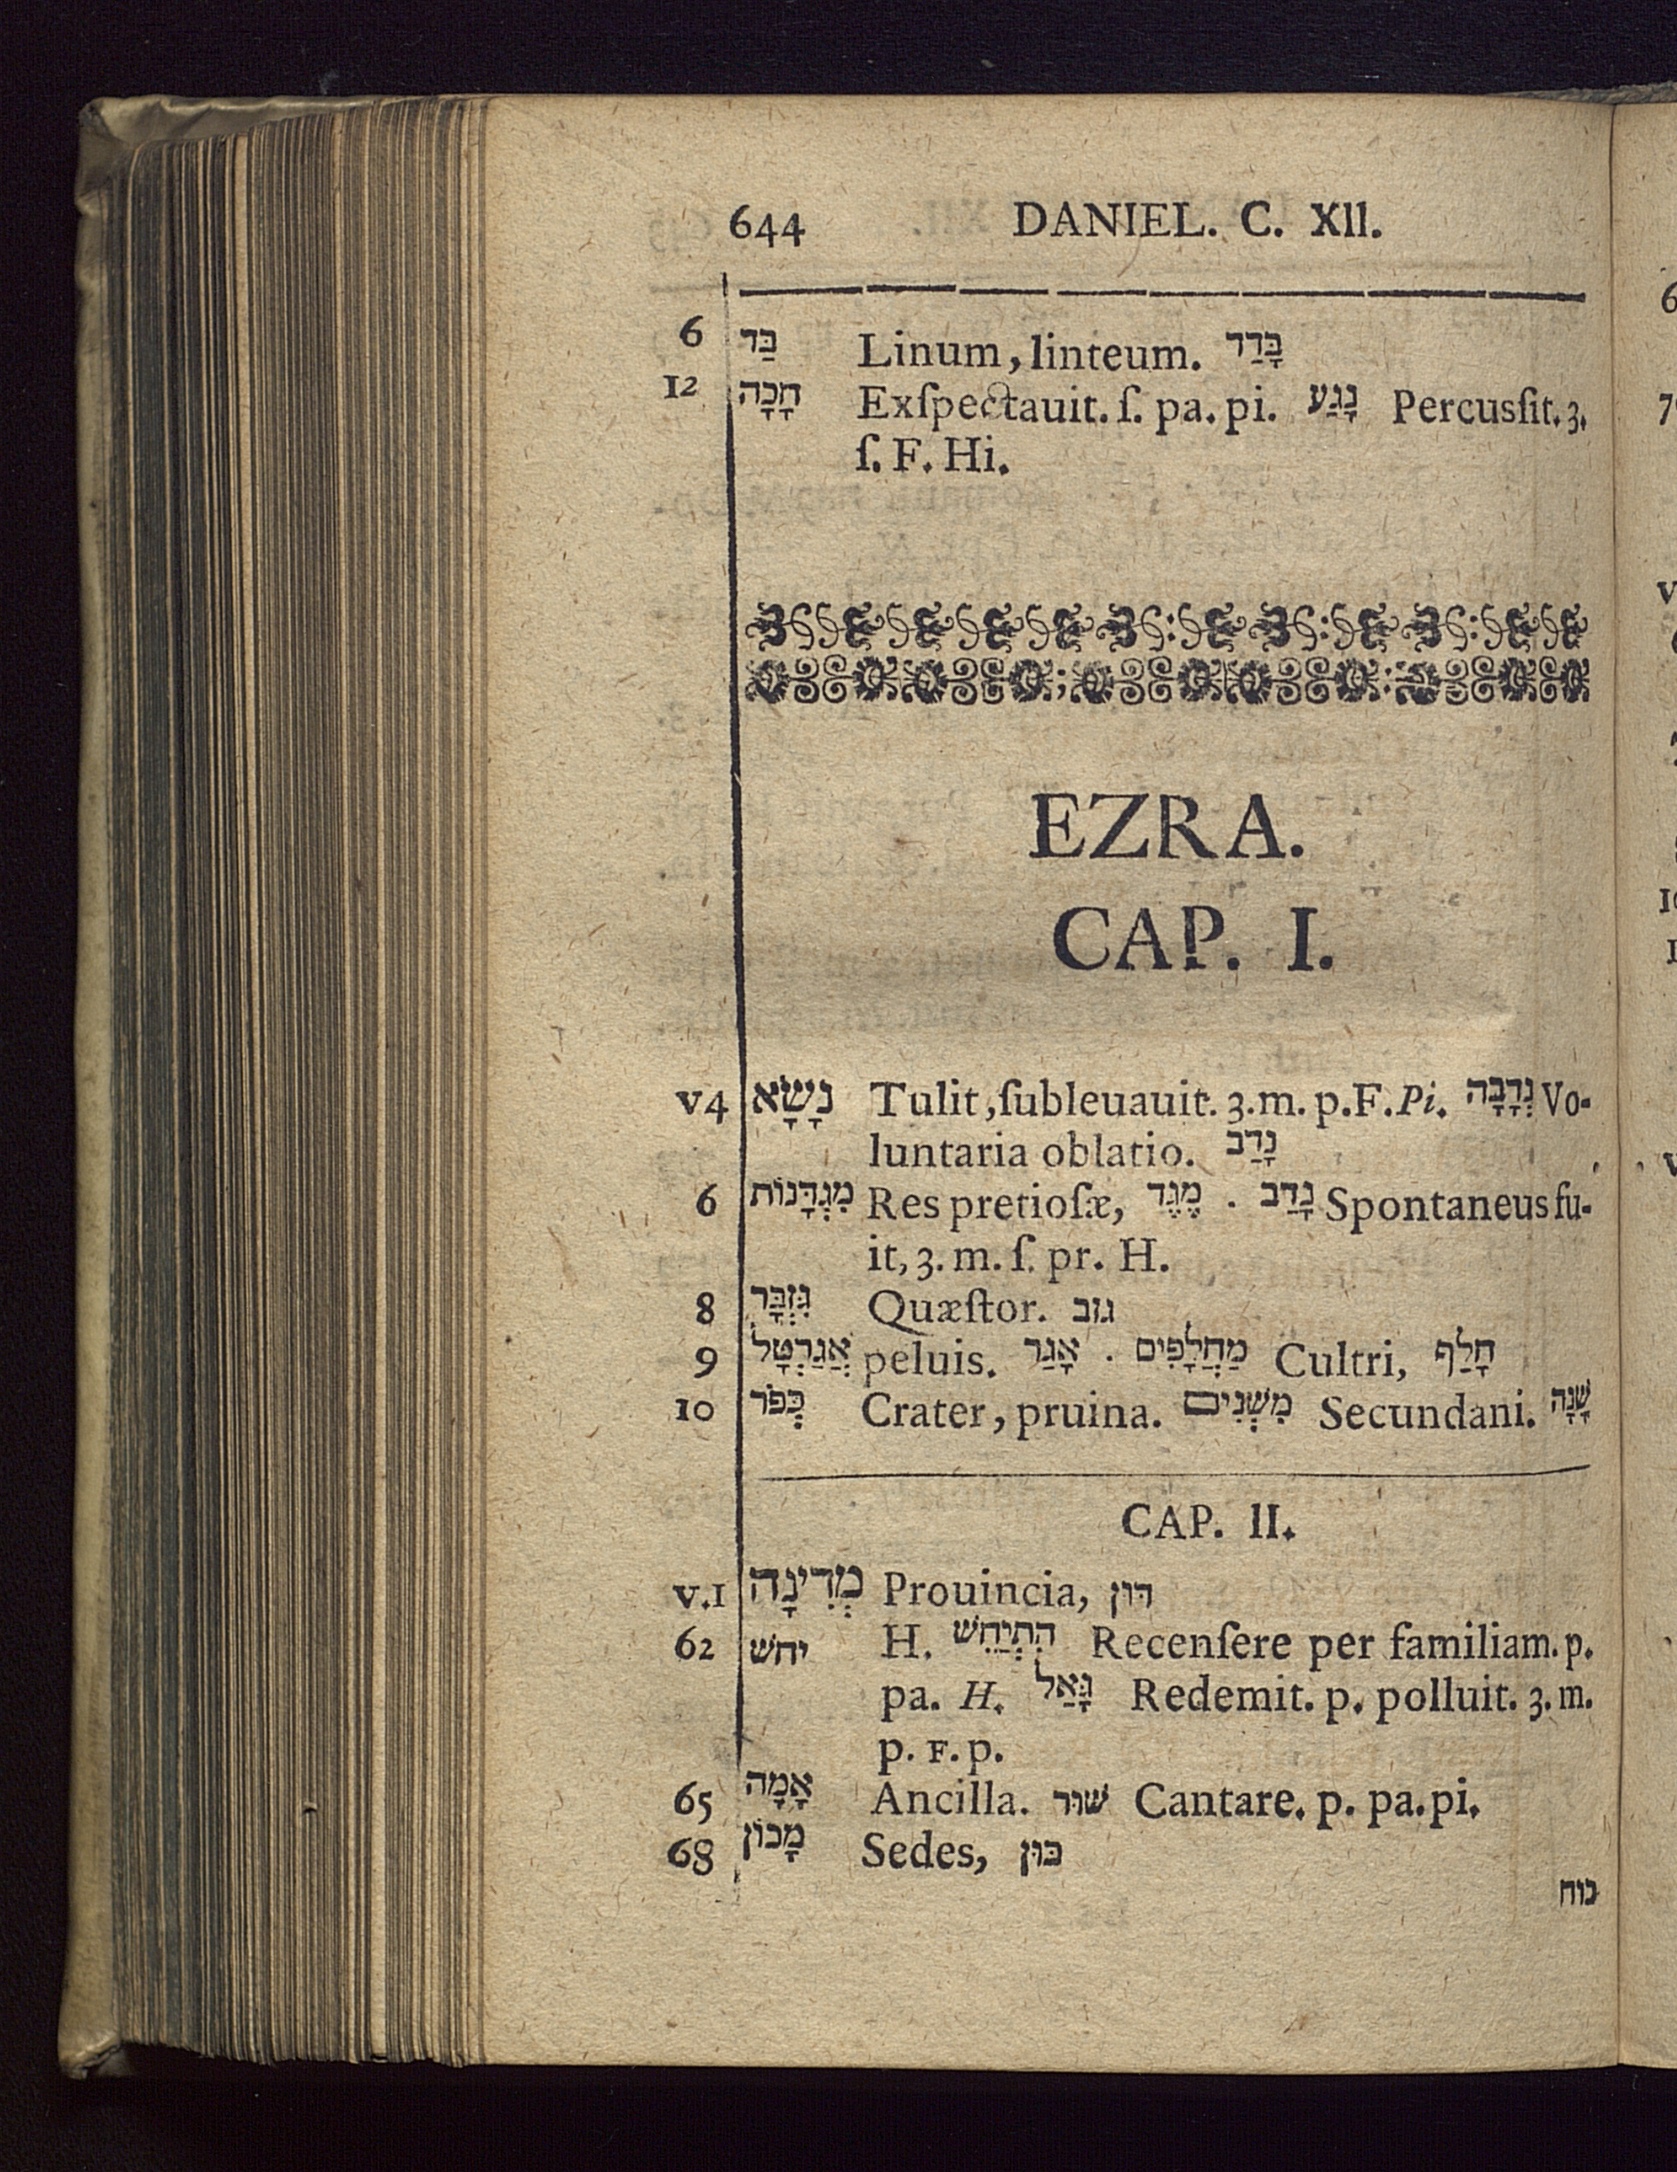 644 DANIEL. C. XII.
6 בַּד Linum, linteum. בָּדַד
12 חָכָה Exſpectauit. ſ. pa. pi. נָגַע Percusſit. 3.
ſ. F. Hi.
EZRA.
CAP. I.
v4 נָשָׂא Tulit, ſubleuauit. 3. m. p. F. Pi. נְדָבָה Vo-
luntaria oblatio. נָדַב
6 מִגְדָּנוֹת Res pretioſæ, מֶגֶד . נָדַב Spontaneus fu-
it, 3. m. ſ. pr. H.
8 גִּזְבָּר Quæſtor. גזב
9 אֲגַרְטָל peluis. אָגַר . מַחֲלָפִים Cultri, חָלַף
10 כְּפֹר Crater, pruina. מִשְׁנִים Secundani. שָׁנָה
CAP. II.
v.1 מְדִינָה Prouincia, דּוּן
62 יחשׁ H. הִתְיַחֵשׁ Recenſere per familiam. p.
pa. H. גָּאַל Redemit. p. polluit. 3. m.
p. F. p.
65 אָמָה Ancilla. שׁוּר Cantare. p. pa. pi.
68 מָכוֹן Sedes, כּוּן
כוח